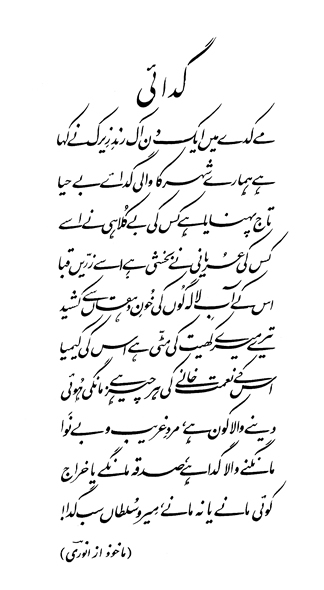 گدائی
مے کدے میں ایک دن اک رند زیرک نے کہا
ہے ہمارے شہر کا والی گدائے بے حیا
تاج پہنایا ہے کس کی بے کلاہی نے اسے
کس کی عُریانی نے بخشی ہے اسے زرّیں قبا
اس کے آبِ لالہ گوں کی خُونِ دہقاں سے کشید
تیرے میرے کھیت کی مٹّی ہے اس کی کیمیا
اس کے نعمت خانے کی ہر چیز ہے مانگی ہوئی
دینے والا کون ہے، مردِ غریب و بے نَوا
مانگنے والا گدا ہے، صدقہ مانگے یا خراج
کوئی مانے یا نہ مانے، مِیر و سُلطاں سب گدا!
(ماخوذ از انوریؔ)